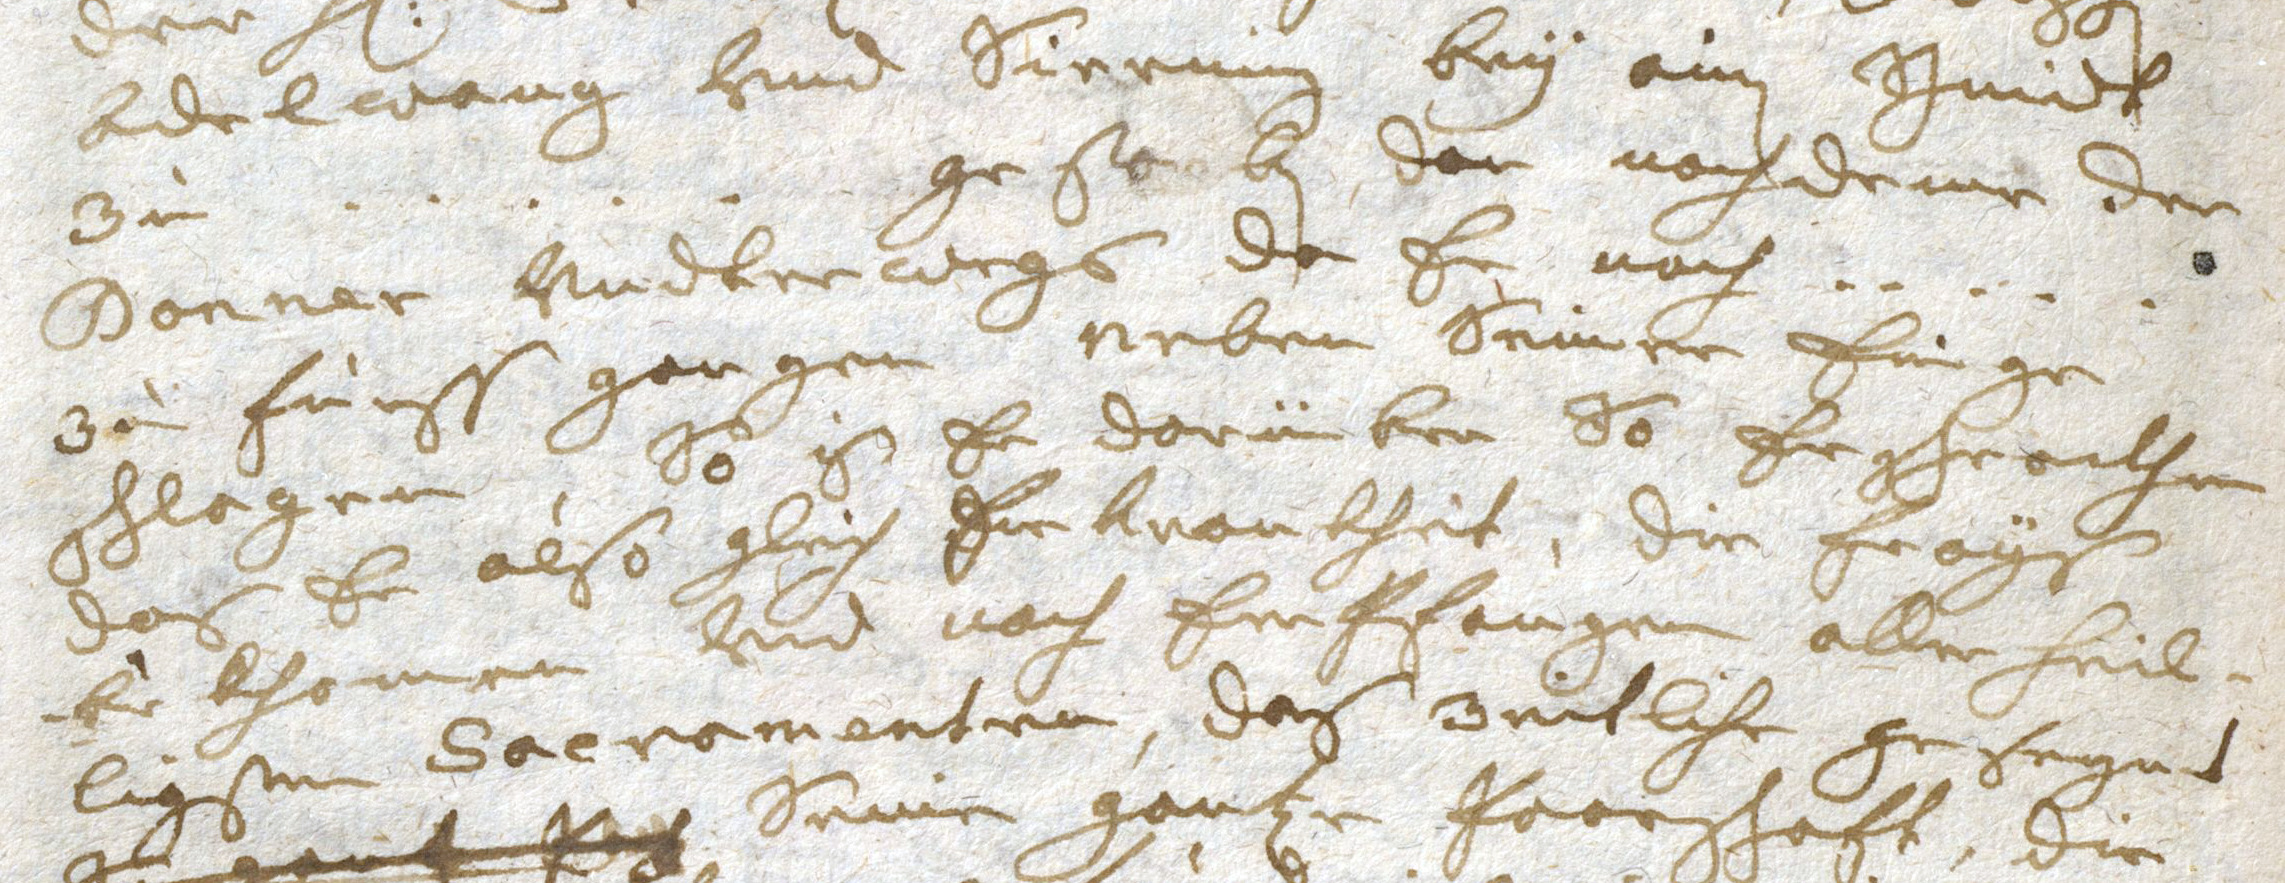 der H:
Adelwang vnd Sierning beÿ aim Schmidt
zu . . . . . gestorb, dan nachdeme der
Donner vndterwegs da Er nach . . . . .
zu fuess gangen neben Seiner Einge
schlagen, So is Er darüber So Erschrockhen
das Er also gleich die krankheit, die Frayß
bekhomen vnd nach Empfangen aller heil-
ligsten Sacramenten, das zeitliche gesegnet
Seine gantze Paarschafft, die